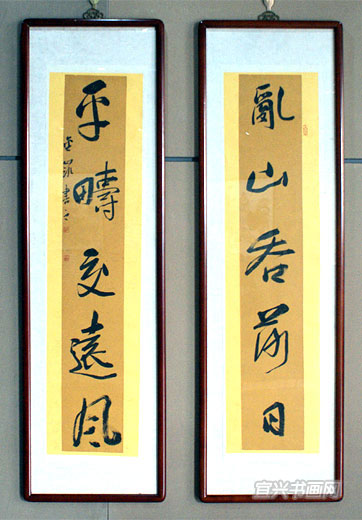 亂山吞落日
平疇交遠風
宜兴书画网